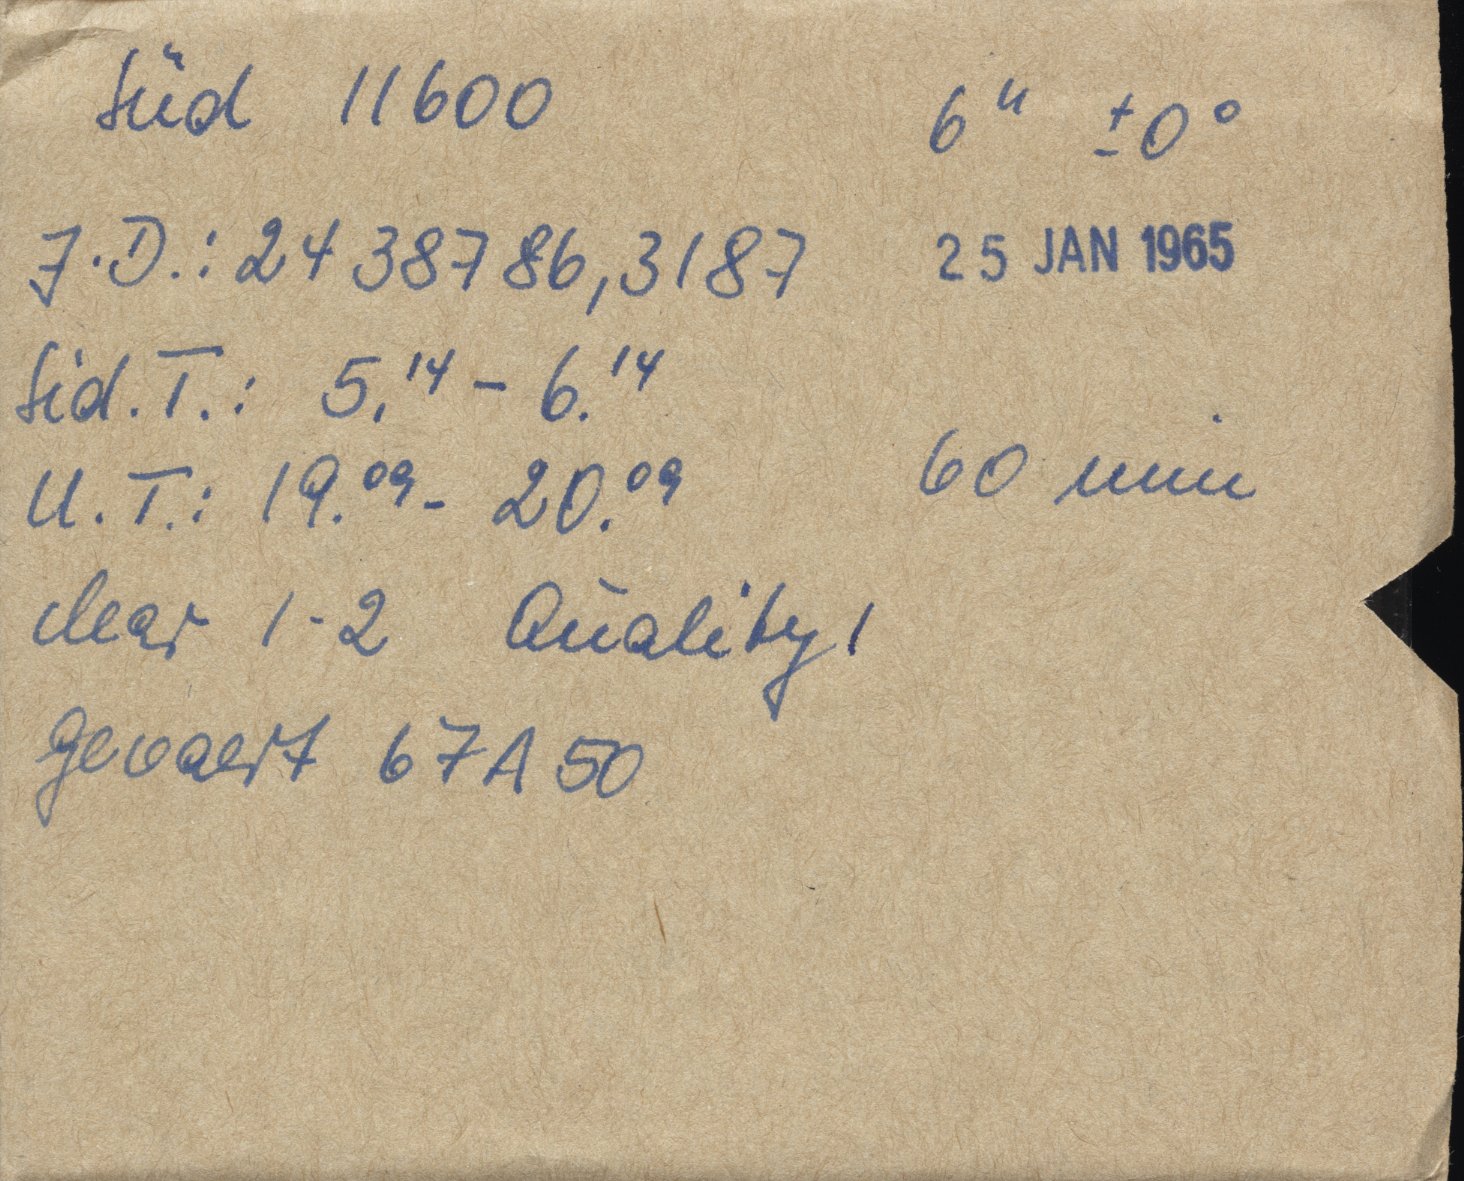 Süd 11600 6ʰ ±0°
J.D.: 2438786,3187 25 JAN 1965
Sid.T.: 5.¹⁴ - 6.¹⁴
U.T.: 19.⁰⁹ - 20.⁰⁹ 60 min
clear 1-2 Quality 1
gevaert 67A50